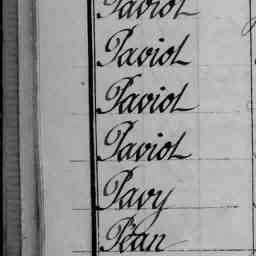 Paviot
Paviot
Paviot
Paviot
Pavy
Péan